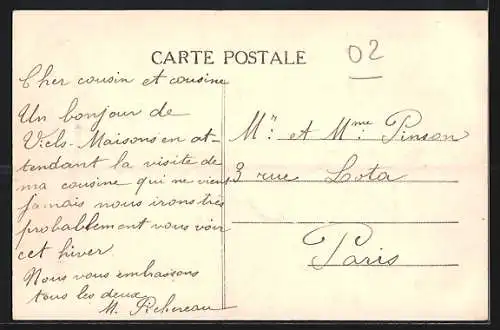 CARTE POSTALE
02
Cher cousin et cousine
Un bonjour de
Viels-Maisons en at-
tendant la visite de
ma cousine qui ne vient
jamais nous irons très
probablement vous voir
cet hiver.
Nous vous embrassons
tous les deux
M.
Mr et Mme Pinson
3 rue Lota
Paris